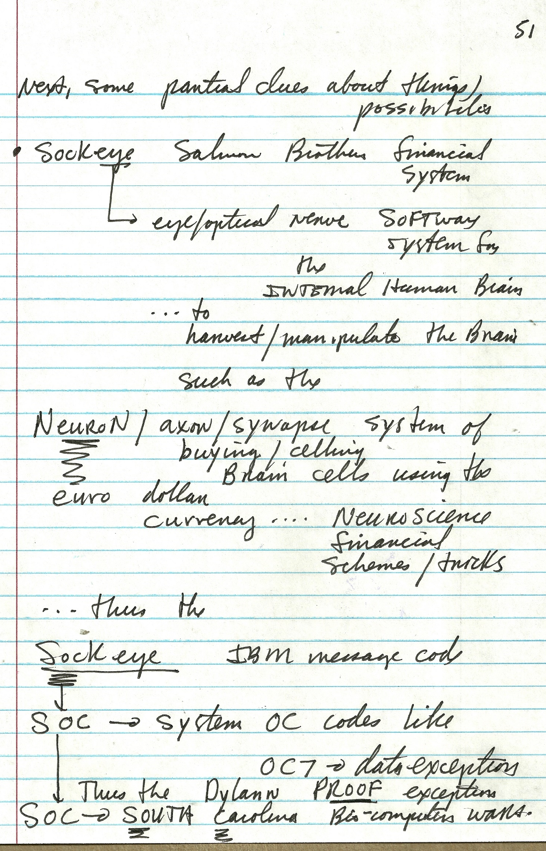 51
Next, some partial clues about things/
possibilities
• Sockeye Salmon Brothers financial
system
eye/optical nerve SOFTWAY
system for
the
INTERNAL Human Brain
... to
harvest/manipulate the Brain
such as the
NeuroN / axon/synapse system of
buying/celling
Brain cells using the
euro dollar
currency .... NeuroScience
financial
schemes/tricks
... thus the
Sockeye IBM message code
SOC → System OC codes like
OC7 → data exception
Thus the Dylann PROOF exception
SOC → SOUTH Carolina Bio-computer wars.